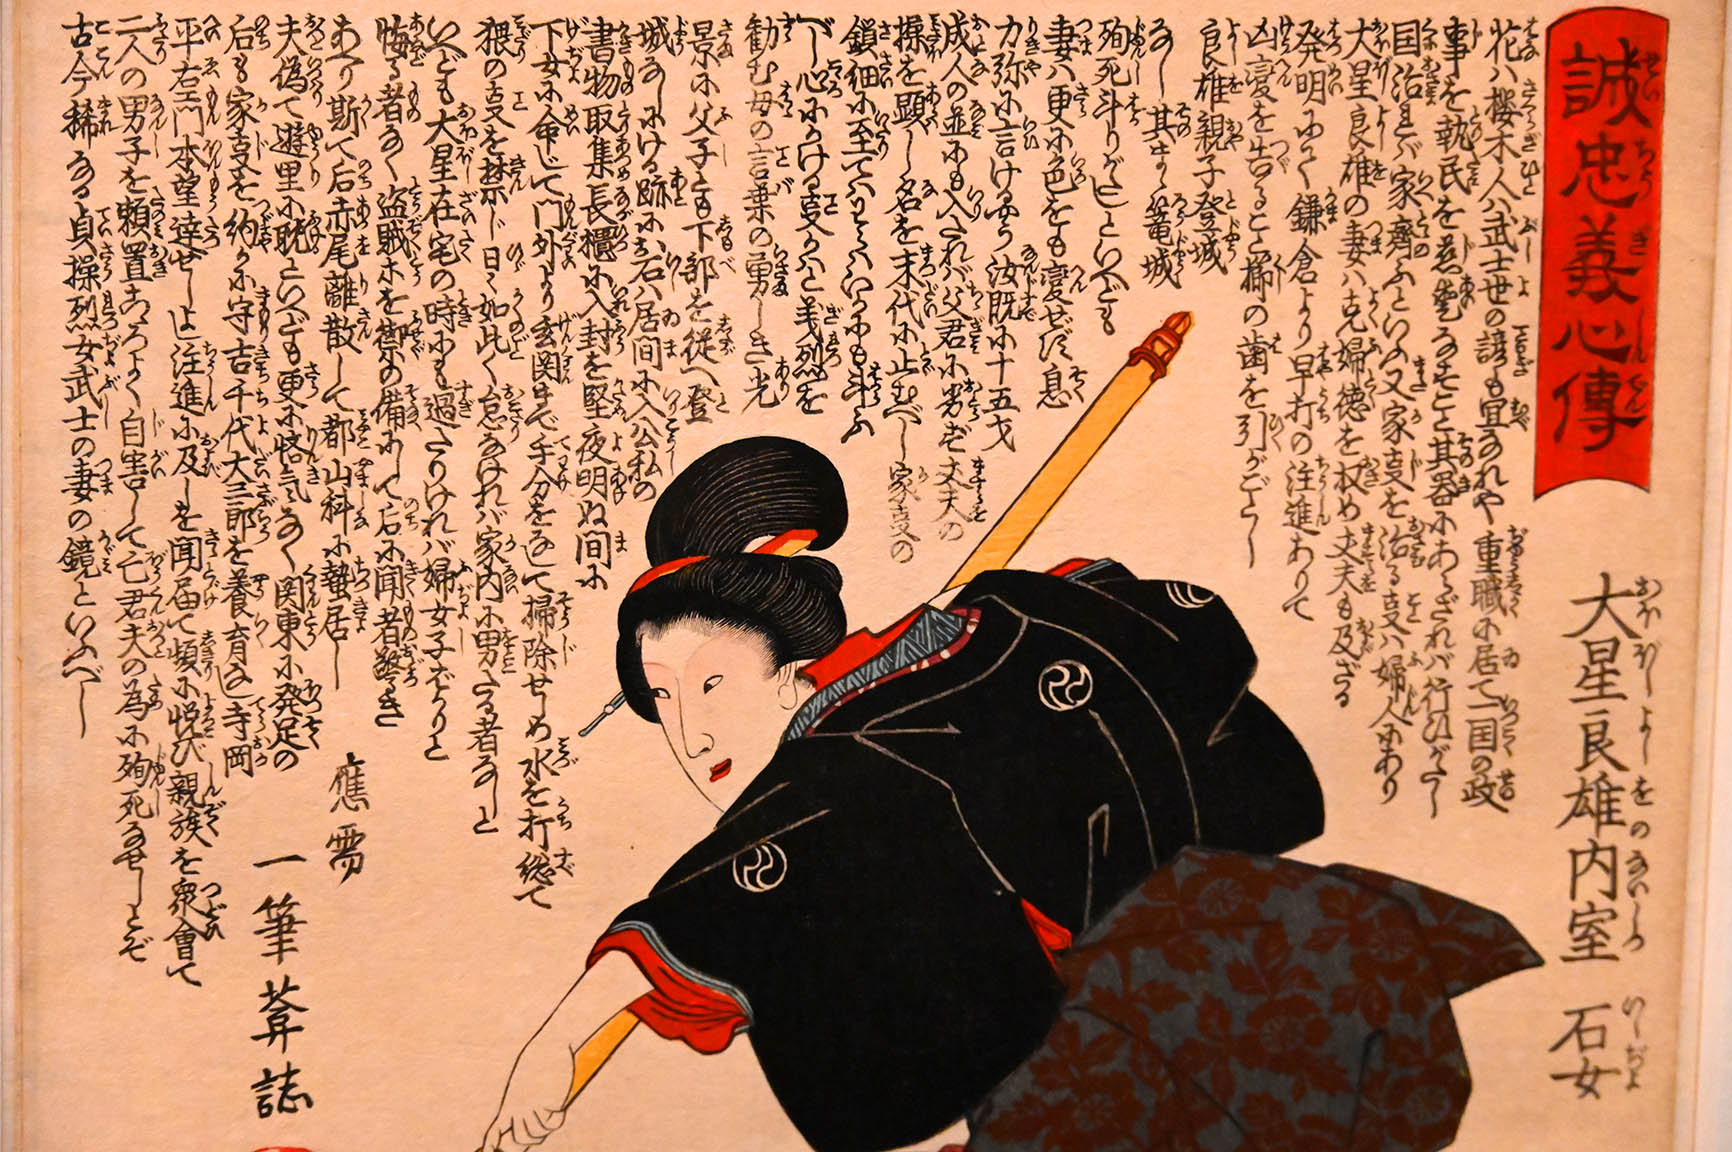 誠忠義心傳
大星良雄内室 石女
花ハ櫻木人ハ武士世の諺も宜なれや重職に居て一国の政
事を執民を
国治まれバ家齊ふといへり又家叓を治る叓ハ婦人にあり
大星良雄の妻ハ克婦徳を収め丈夫も及ざる
発明にて鎌倉より早打の注進ありて
凶変を告ること櫛の歯を引がごとし
良雄親子登城
なし其まゝ篭城
殉死斗りがたしといへども
妻ハ更に色をも変ぜず息
力弥に言けるやう汝既に十五才
成人の並にも入れバ父君に劣ず丈夫の
操を顕し名を末代に止むべし家叓の
鎖細に至てハ
べし心にかける叓かハと義烈を
勧む母の言葉の勇しき光
景に父子とも下部を従へ登
城なしにける跡に石ハ居間に入公私の
書物取集長櫃に入封を堅夜明ぬ間に
下女に命じて門外より玄関まで手分をなして掃除せしめ水を打総て
猥の叓を禁じ日々如此く怠なけれバ家内に男たる者なしと
いへども大星在宅の時にも過たりけれバ婦女子ばかりと
侮る者なく盗賊を禦の備にして后に聞者驚き
あへり斯て后赤尾離散して都山科に蟄居し
夫偽て遊里に耽といへども更に悋気なく関東に発足の
后も家叓を約に守吉千代大三郎を養育し寺岡
平右エ門本望達せしよし注進に及しを聞届て頻に悦び親族を衆會て
二人の男子を頼置こゝろよく自害して亡君夫の為に殉死なせしとぞ
古今稀なる貞操烈女武士の妻の鏡といふべし
應需
一筆葊誌